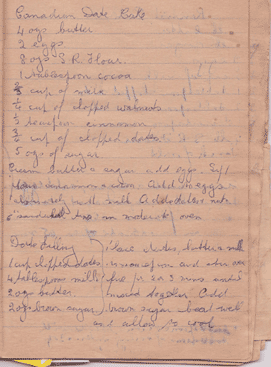 Canadian Date Cake
4 ozs butter
2 eggs
8 ozs S. R. Flour.
1 tablespoon cocoa
cup of milk
1/4 cup of chopped walnuts
teaspoon cinnamon
cup of chopped dates
5 ozs of sugar.
Cream butter & sugar add eggs. Sift
flour cinnamon & cocoa. Add to eggs
alternately with milk Add dates & nuts
in moderate oven
Date Icing
Place dates, butter & milk
1 cup chopped dates
in saucepan and stir over
4 tablespoons milk
fire for 2 or 3 mins until
2 ozs butter.
mixed together Add
3 ozs brown sugar
brown sugar beat well
and allow to cool